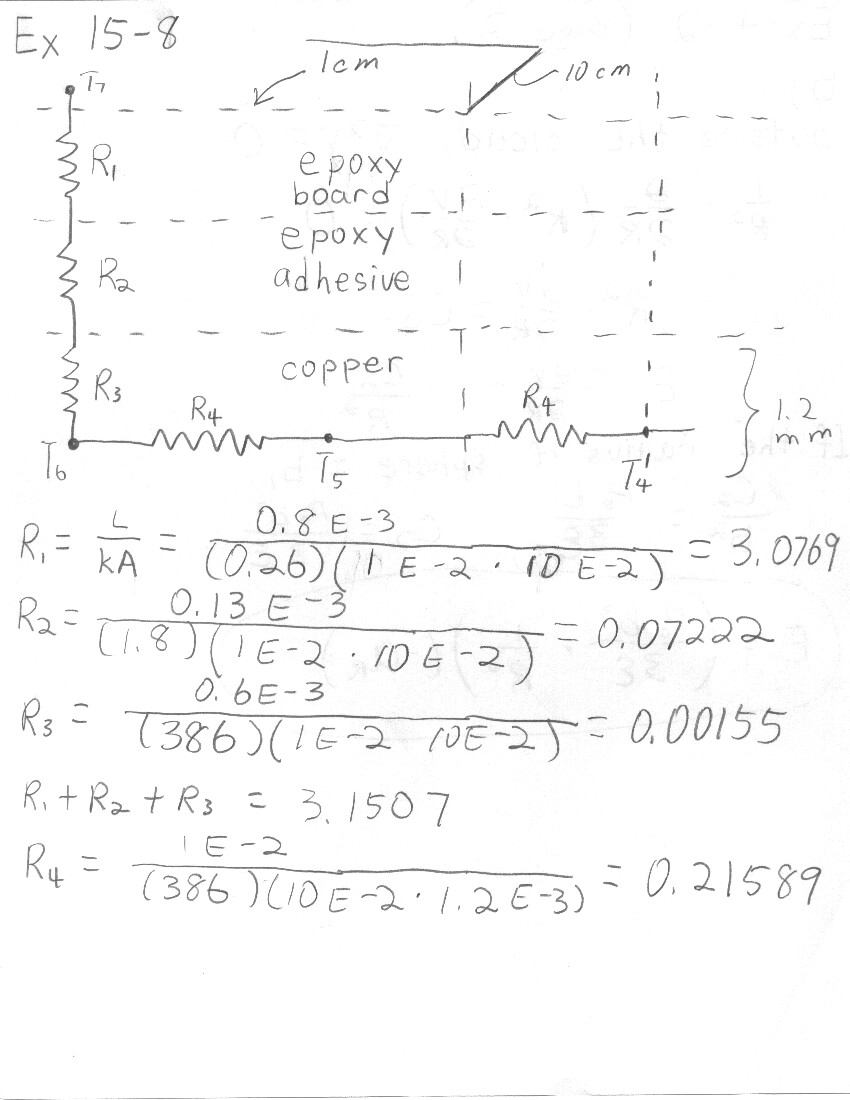 Ex 15-8
1cm
10cm
T7
R1
epoxy
board
epoxy
adhesive
R2
copper
R3
R4
R4
1.2
mm
T6
T5
T4
R1 = L/kA = 0.8 E-3/(0.26)(1 E-2 · 10 E-2) = 3.0769
R2 = 0.13 E-3/(1.8)(1E-2 · 10E-2) = 0.07222
R3 = 0.6E-3/(386)(1E-2 10E-2) = 0.00155
R1 + R2 + R3 = 3.1507
R4 = 1E-2/(386)(10E-2 · 1.2E-3) = 0.21589